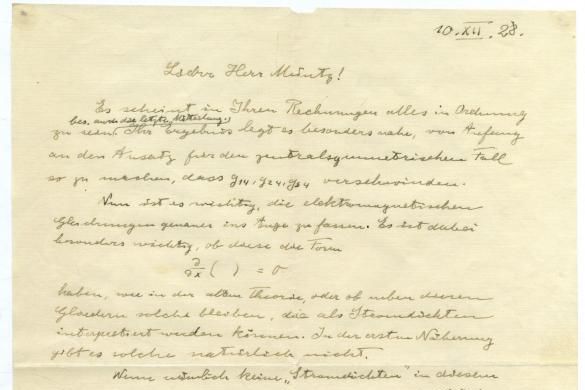 10. XII. 28.
Lieber Herr Müntz!
Es scheint in Ihren Rechnungen alles in Ordnung
bes. auch die letzte Mitteilung.
zu sein. Ihr Ergebnis legt es besonders nahe, von Anfang
an den Ansatz für den zentralsymmetrischen Fall
so zu machen, dass g14, g24, g34 verschwinden.
Nun ist es wichtig, die elektromagnetischen
Gleichungen genauer ins Auge zu fassen. Es ist dabei
besonders wichtig, ob diese die Form
∂/∂x ( ) = 0
haben, wie in der alten Theorie, oder ob neben diesen
Gliedern solche bleiben, die als Stromdichten
interpretiert werden können. In der ersten Näherung
gibt es solche natürlich nicht.
Wenn nämlich keine „Stromdichten" in diesem